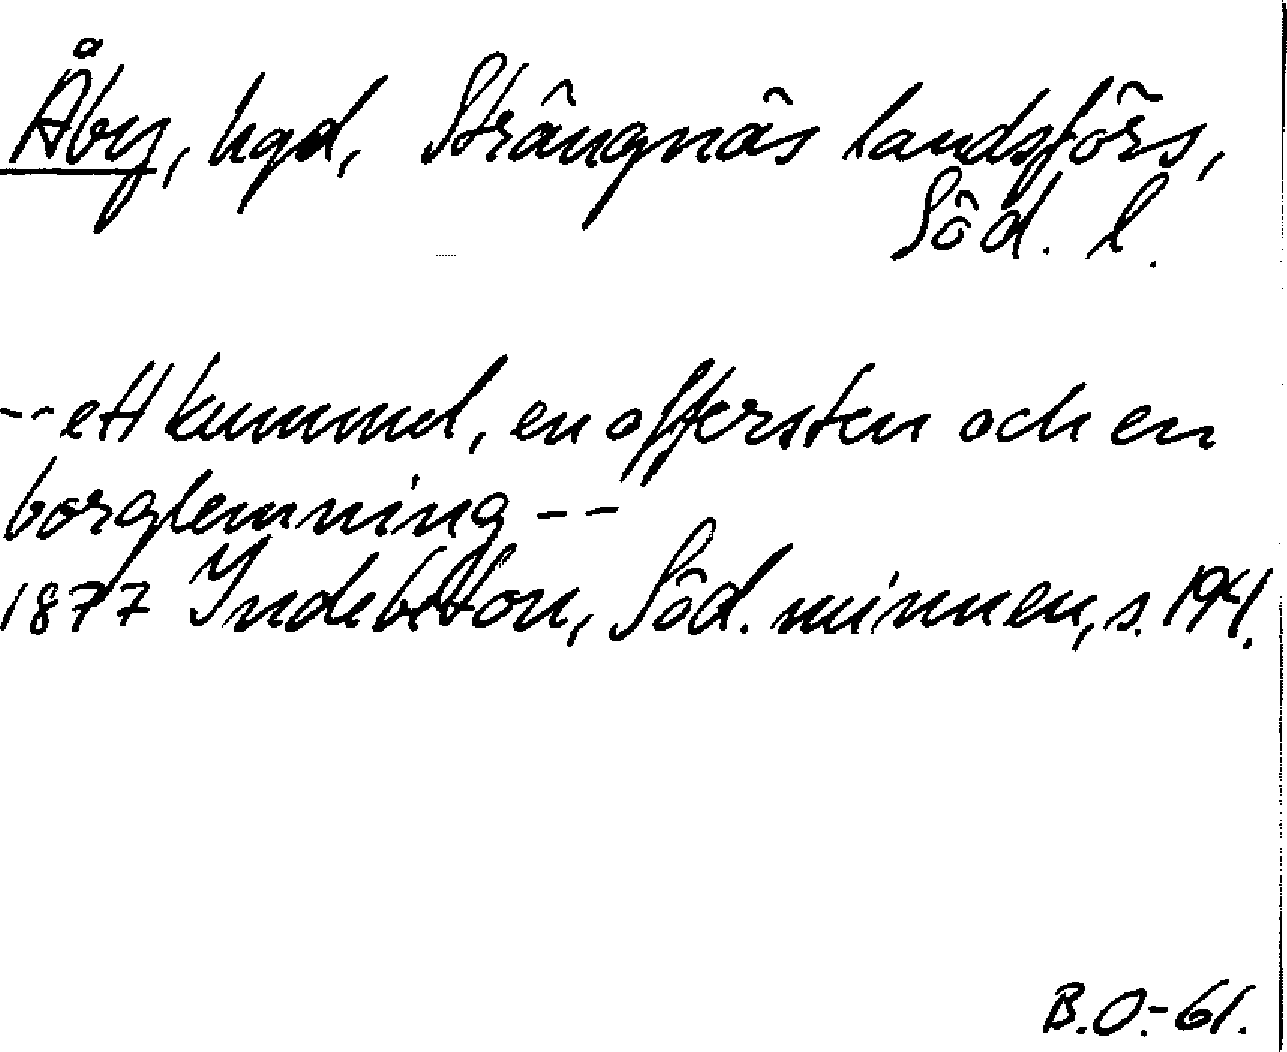 Åby, hgd, Strängnäs landsförs,
Söd. l.
--ett kummel, en offersten och en
borglemning--
1877 Indebetou, Söd. minnen, s. 141.
B.O.-61.